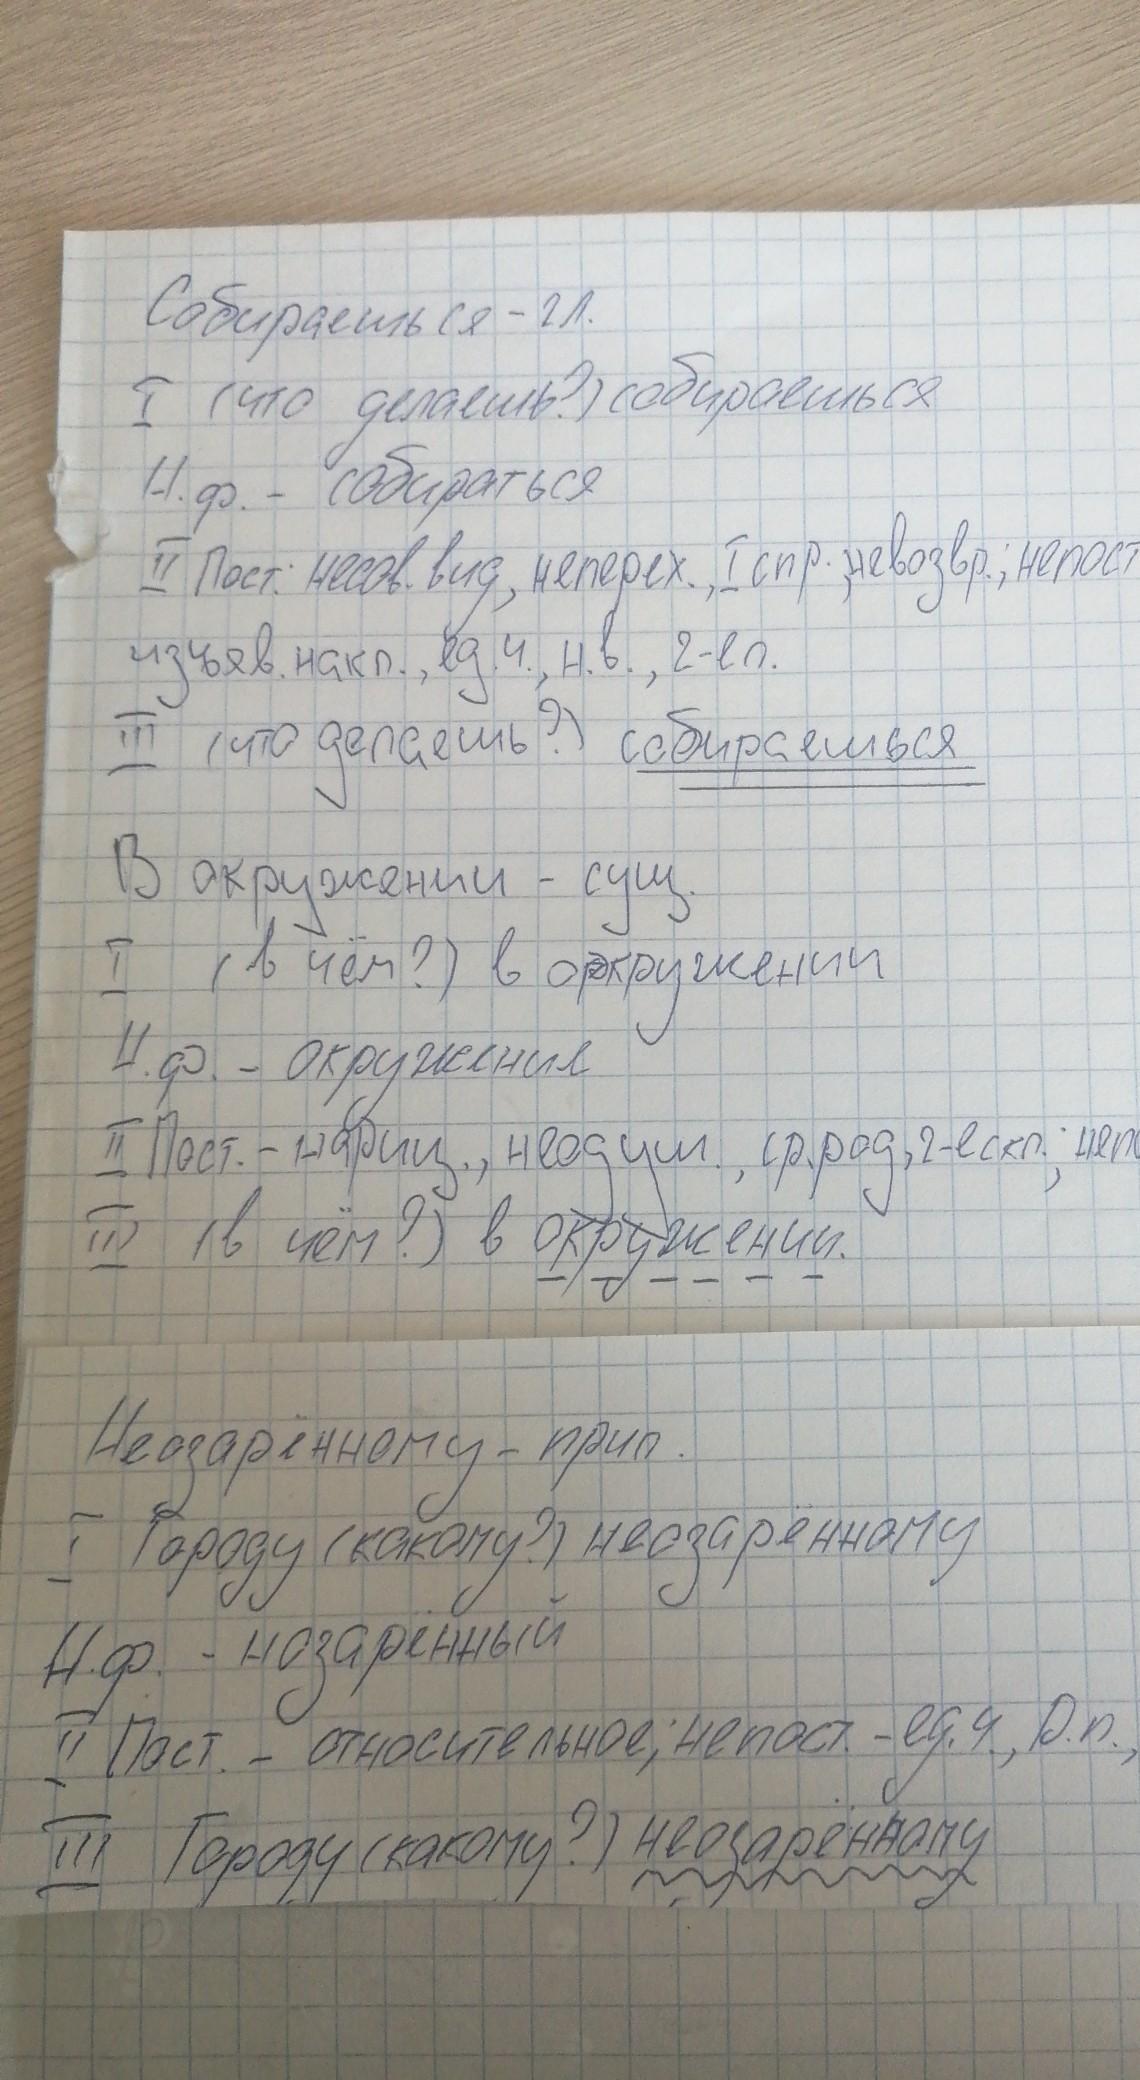 Собираешься - гл.
I (что делаешь?) собираешься
Н.ф. - собираться
II Пост: несов. вид, неперех., I спр., невозвр.; непост
изъяв. накл., ед.ч., н.в., 2-е л.
III (что делаешь?) собираешься
В окружении - сущ.
I (в чём?) в окружении
Н.ф. - окружение
II Пост. - нариц., неодуш., ср.род, 2-е скл.; неп
III (в чём?) в окружении.
Неозарённому - прил.
I Городу (какому?) неозарённому
Н.ф. - нозарённый
II Пост. - относительное; непост. - ед.ч., Д.п.,
III Городу (какому?) неозарённому